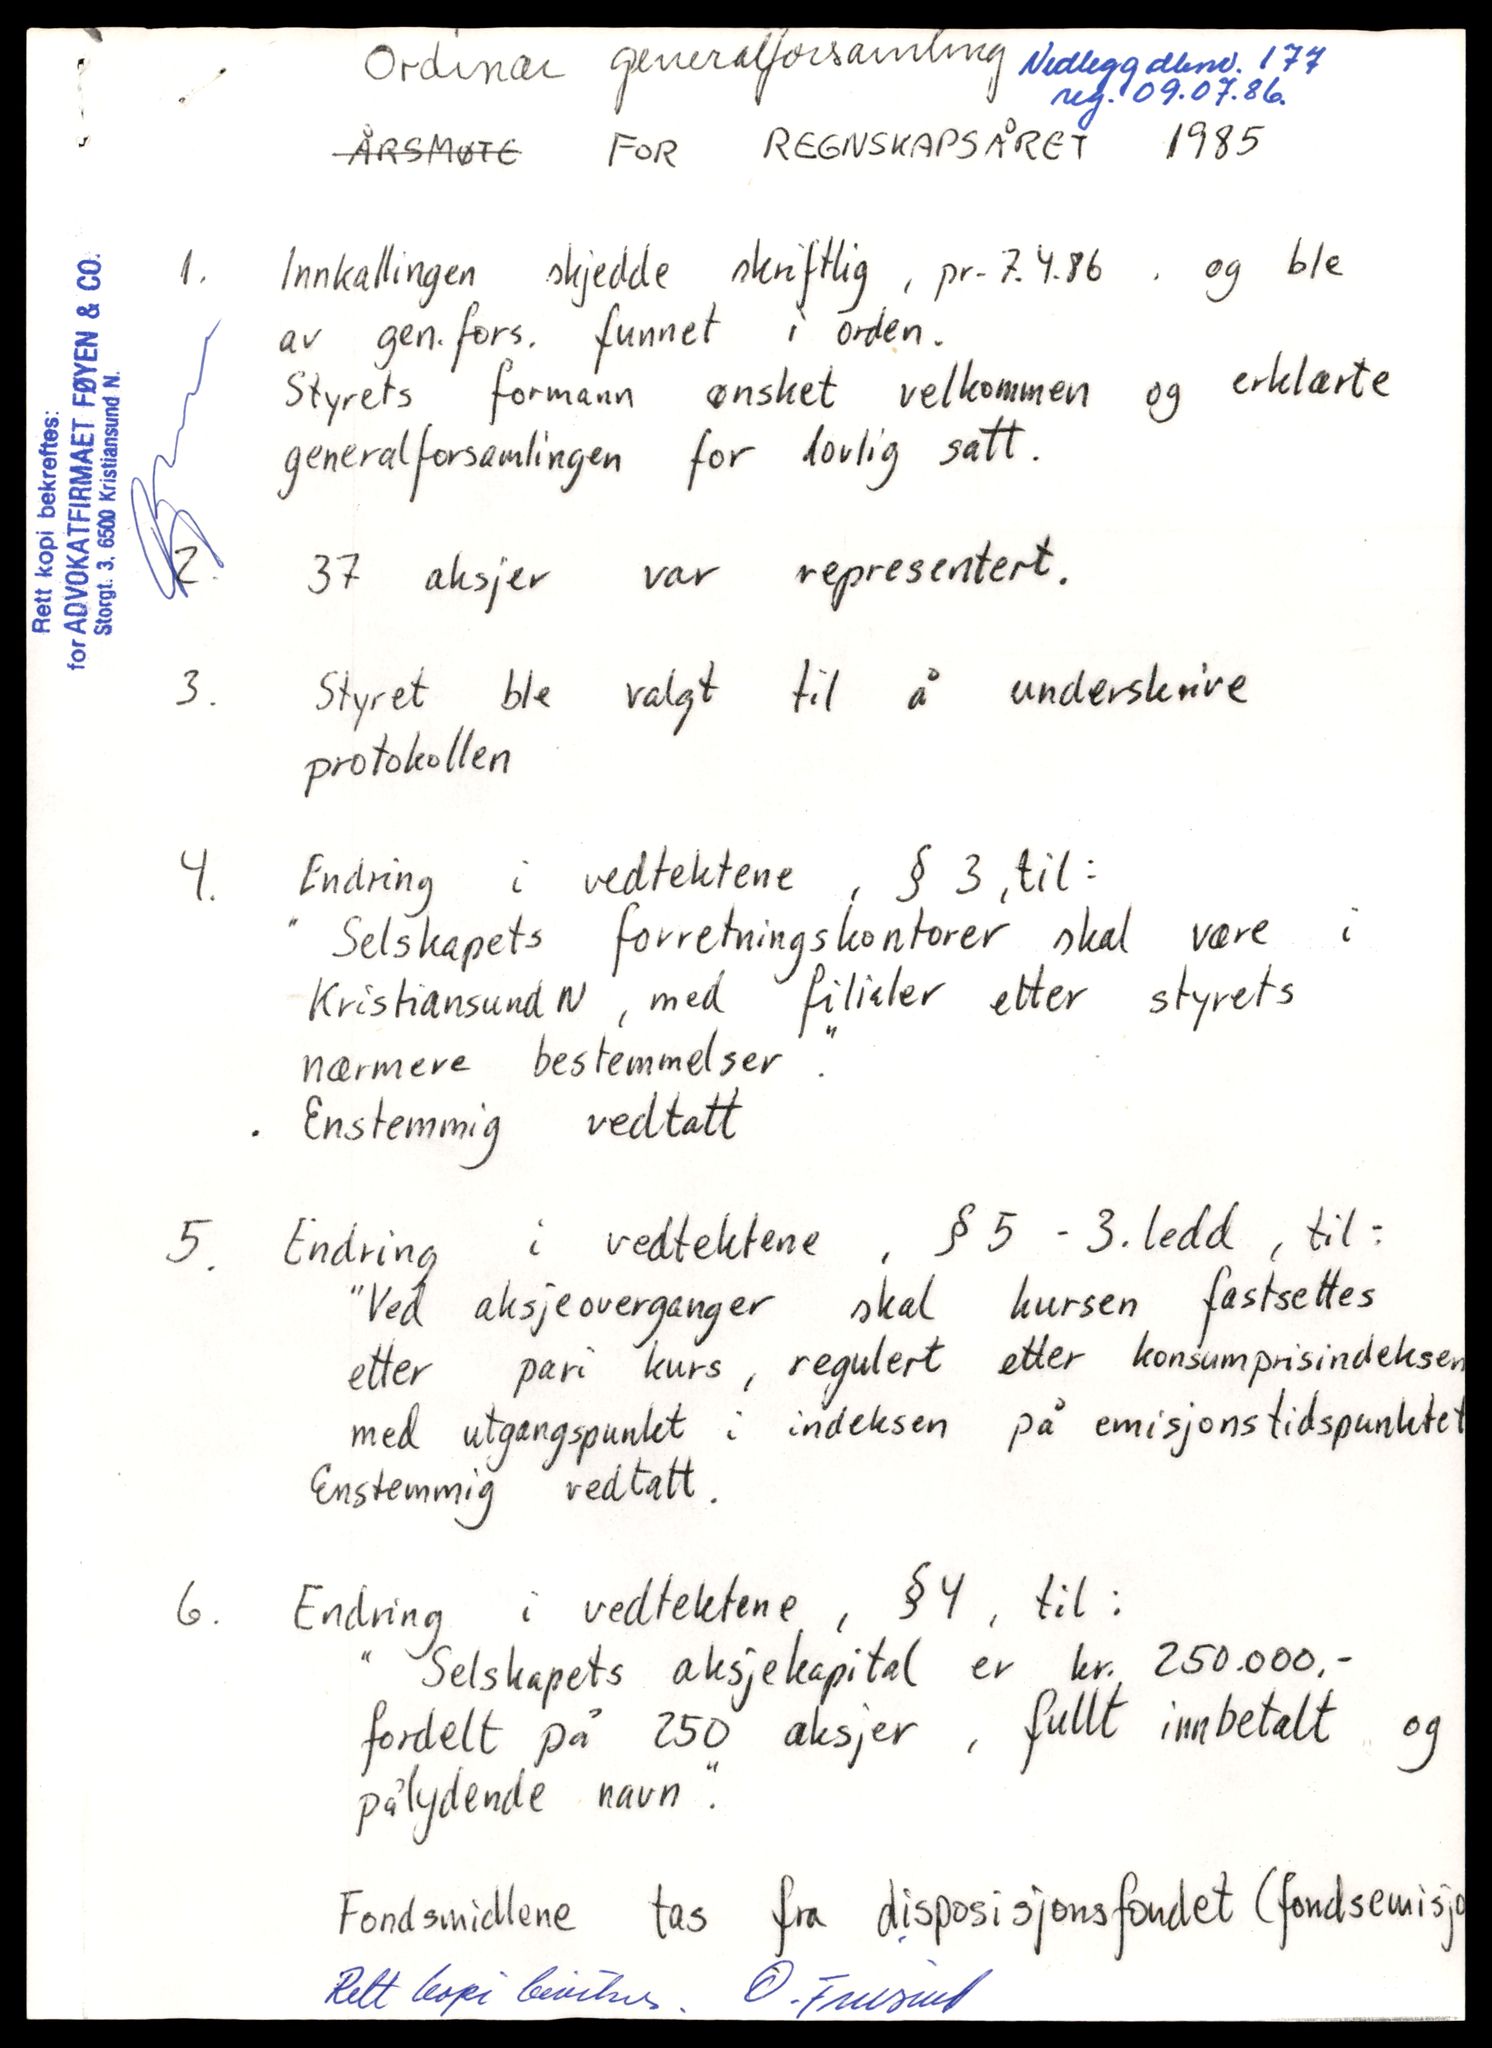 Ordinær generalforsamling
Nedlegg dknr. 177
reg. 09.07.86.
ÅRSMØTE FOR REGNSKAPSÅRET 1985
Rett kopi bekreftes:
for ADVOKATFIRMAET FØYEN & CO.
Storgt. 3, 6500 Kristiansund N.
1. Innkallingen skjedde skriftlig, pr. 7.4.86. og ble
av gen.fors. funnet i orden.
Styrets formann ønsket velkommen og erklærte
generalforsamlingen for lovlig satt.
2. 37 aksjer var representert.
3. Styret ble valgt til å underskrive
protokollen
4. Endring i vedtektene, § 3, til:
"Selskapets forretningskontorer skal være i
Kristiansund N, med filialer etter styrets
nærmere bestemmelser".
Enstemmig vedtatt
5. Endring i vedtektene, § 5 - 3. ledd, til:
"Ved aksjeoverganger skal kursen fastsettes
etter pari kurs, regulert etter konsumprisindeksen
med utgangspunkt i indeksen på emisjonstidspunktet
Enstemmig vedtatt.
6. Endring i vedtektene, § 4, til:
"Selskapets aksjekapital er kr. 250.000,-
fordelt på 250 aksjer, fullt innbetalt og
pålydende navn".
Fondsmidlene tas fra disposisjonsfondet (fondsemisjo
Rett kopi